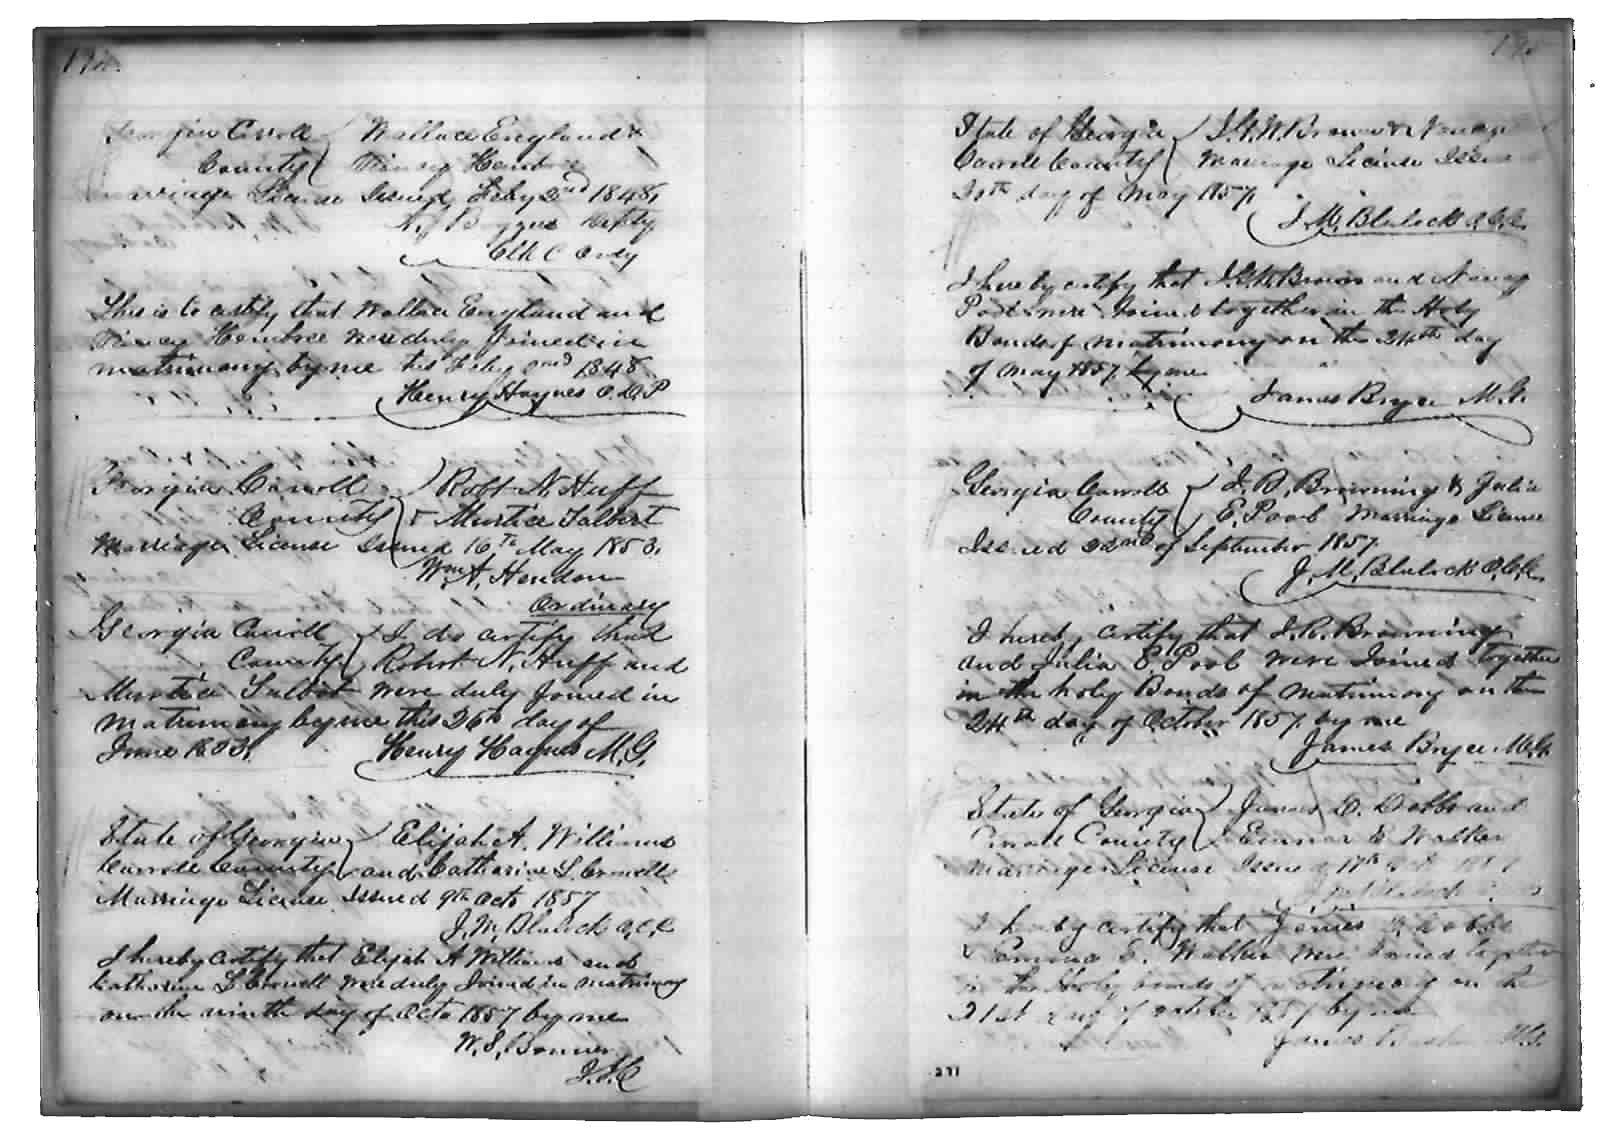 Georgia Carroll Wallace England &
County Hembree
Marriage License Issued Feby 2nd 1848,
Depty
Clk C Ordy
This is to certify that Wallace England and
Hembree were duly Joined in
matrimony by me this Feby 2nd 1848
Henry Haynes
Georgia Carroll Robt N. Huff
County & Murtice Talbert
Marriage License Issued 16Th May 1853.
Wm A. Hendon
Ordinary
Georgia Carroll I do certify that
County Robert N. Huff and
Murtice Talbot were duly Joined in
Matrimony by me this 26th day of
June 1853. Henry Haynes M.G.
State of Georgia Elijah A. Williams
Carroll County and Catharine L.
Marriage License Issued 9th Octo 1857
J. M. Blalock O.C.C.
I hereby certify that Elijah A Williams and
Catharine L were duly Joined in matrimony
on the ninth day of Octo 1857 by me
W. S. Bonner
State of Georgia Brown & Nancy
Carroll County Marriage License Issued
day of May 1857,
J. M. Blalock O.C.C.
I hereby certify that Brown and Nancy
were Joined together in the Holy
Bonds of matrimony on the 24th day
of May 1857, by me
James Bryce M.G.
Georgia Carroll Browning & Julia
County E. Pool Marriage License
Issued 22nd of September 1857.
J. M. Blalock O.C.C.
I hereby certify that Browning
and Julia E. Pool were Joined together
in the holy Bonds of matrimony on the
24th day of October 1857, by me
James Bryce M.G.
State of Georgia James D. Dobbs and
Carroll County E Walker
Marriage License Issued 17th
J. M. Blalock
I hereby certify that James Dobbs
& E. Walker were Joined together
in the Holy bonds of matrimony on the
21st day of October 1857 by me
James M.G.
271